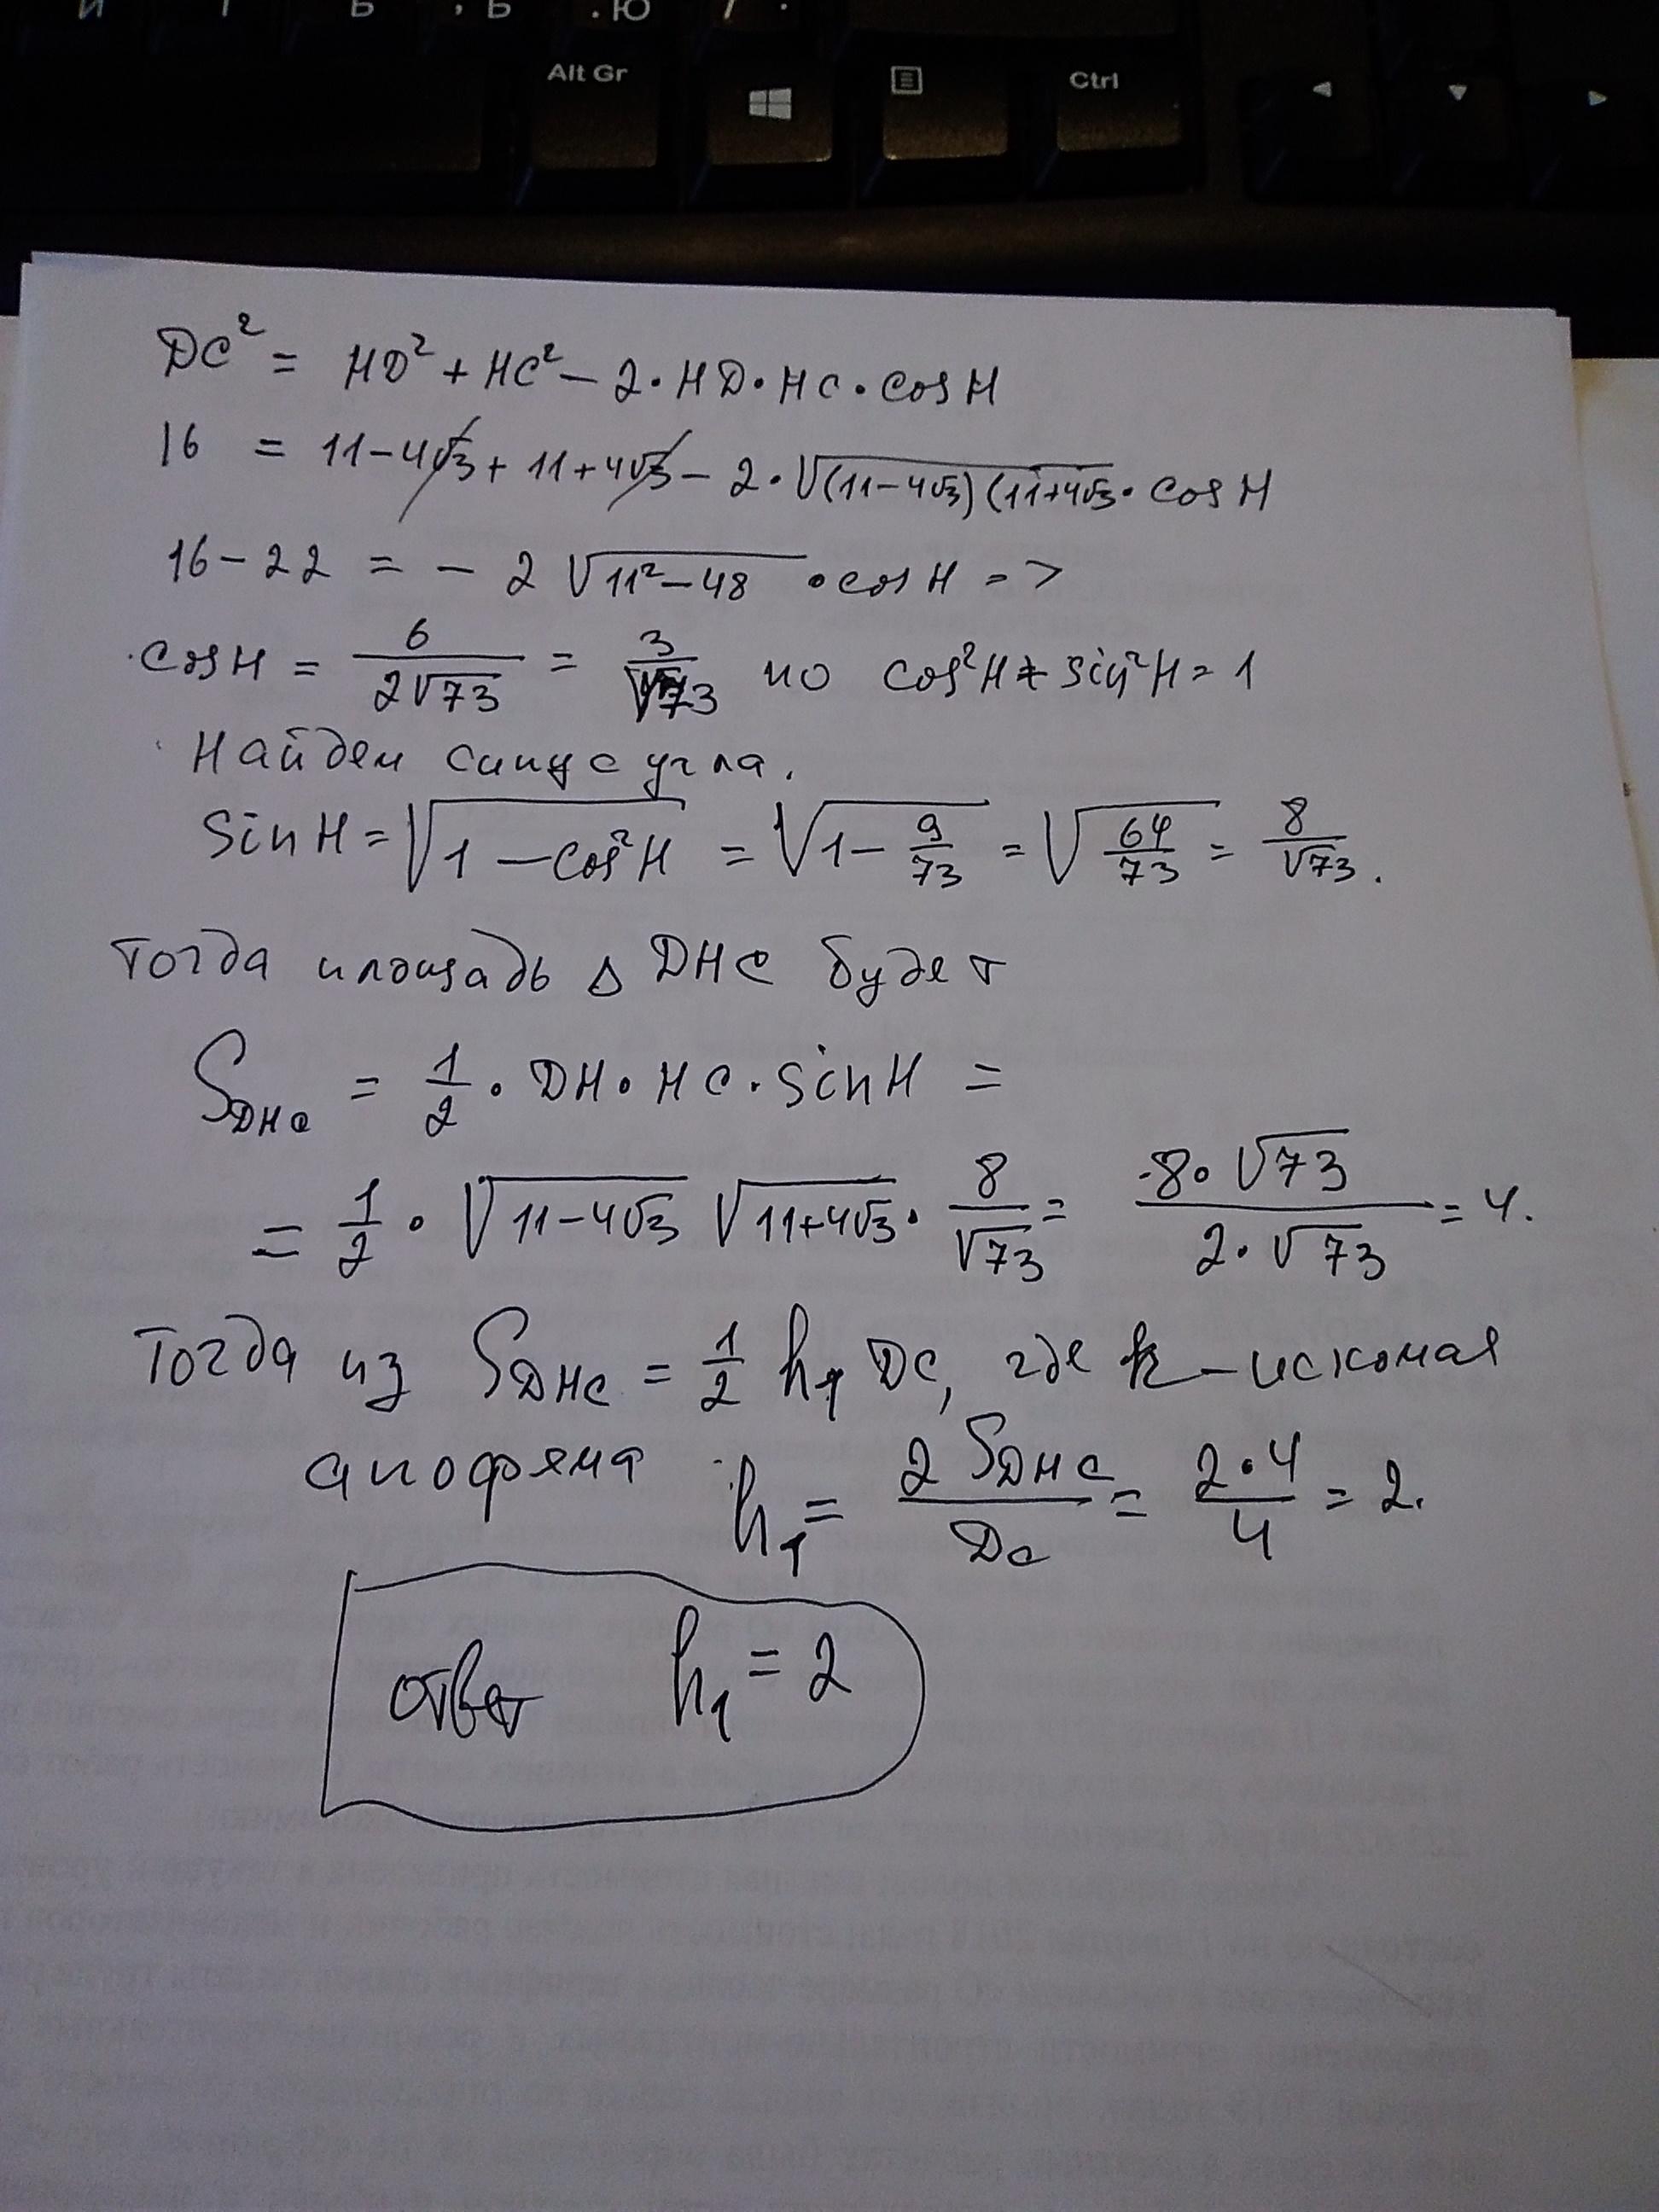 Alt Gr
Ctrl
DC² = HD² + HC² − 2·HD·HC·cos H
16 = 11−4√3 + 11+4√3 − 2·√(11−4√3)(11+4√3 · cos H
16−22 = − 2 √11²−48 · cos H =>
cos H = 6/2√73 = 3/√73 но cos²H + sin²H = 1
Найдем синус угла.
Sin H = √1 − cos²H = √1 − 9/73 = √64/73 = 8/√73.
Тогда площадь Δ DHC будет
S_DHC = 1/2 · DH · HC · sin H =
= 1/2 · √11−4√3 √11+4√3 · 8/√73 = 8·√73/2·√73 = 4.
Тогда из S_DHC = 1/2 h₁ DC, где h − искомая
апофема h₁ = 2 S_DHC/DC = 2·4/4 = 2.
ответ h₁ = 2